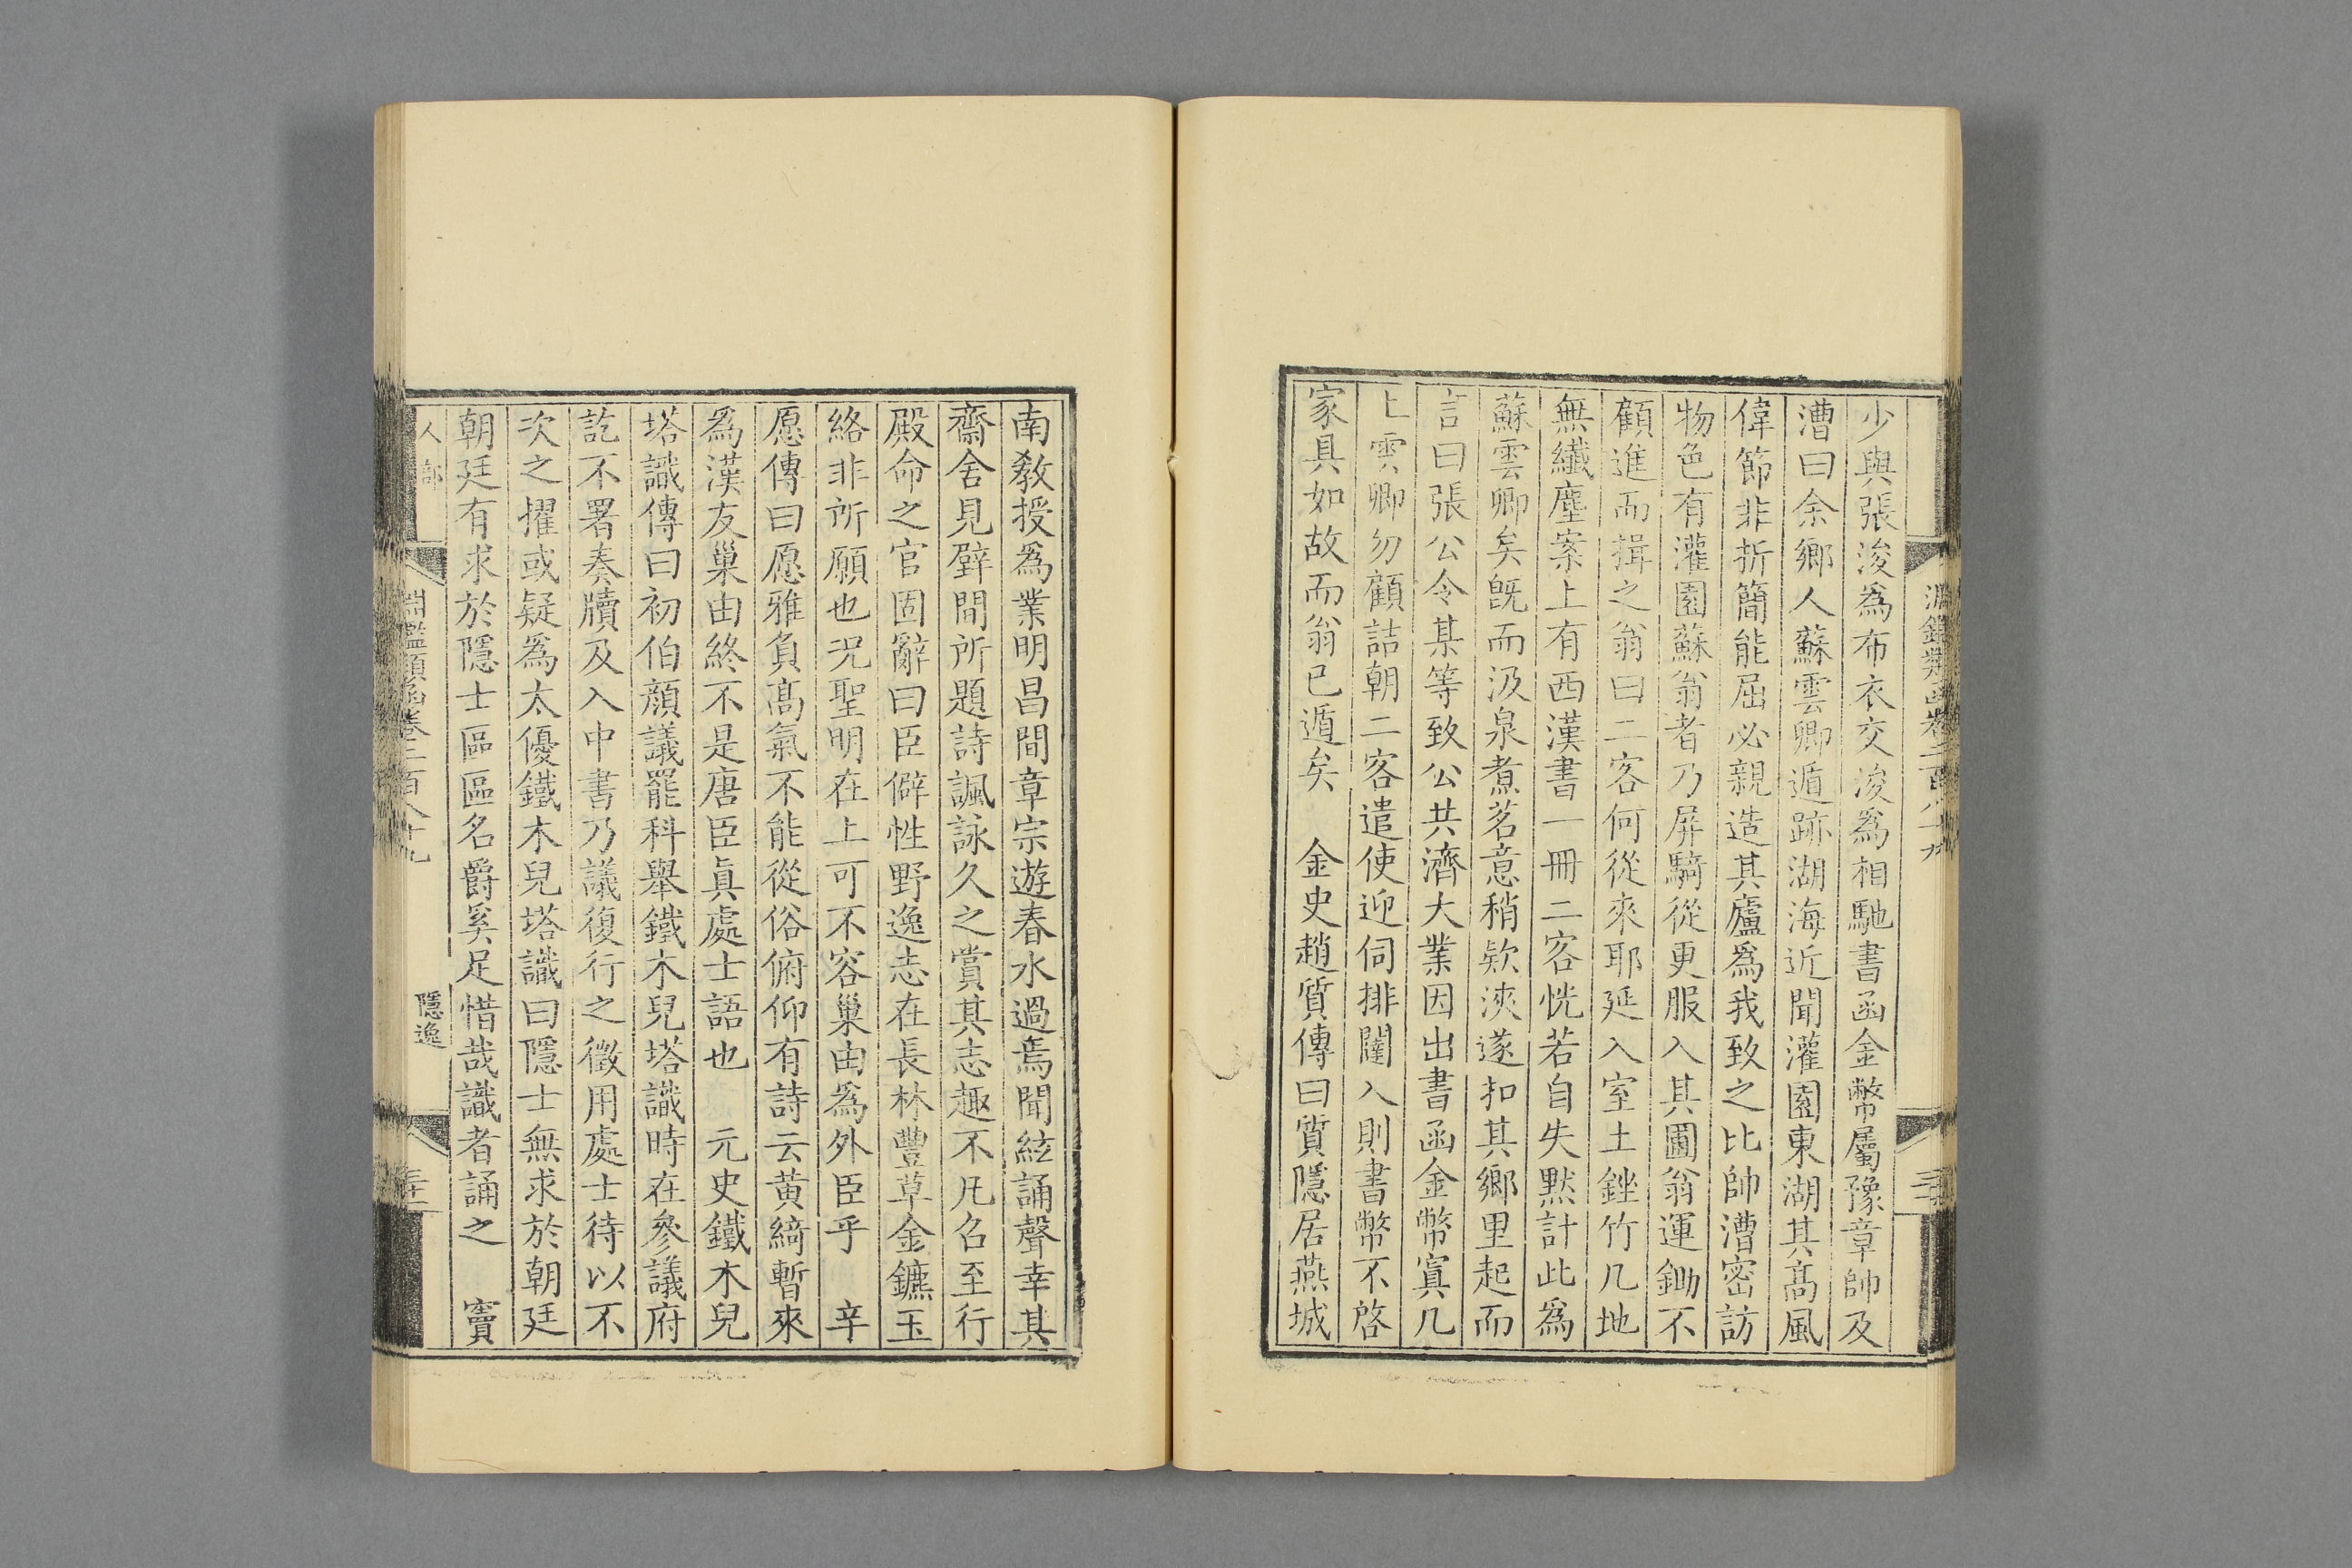 少與張浚爲布衣交浚爲相馳書函金幣屬豫章帥及
漕曰余鄉人蘇雲卿遁跡湖海近聞灌園東湖其髙風
偉節非折簡能屈必親造其廬爲我致之比帥漕密訪
物色有灌園蘇翁者乃屏騎從更服入其圃翁運鋤不
顧進而揖之翁曰二客何從來耶延入室土銼竹几地
無纖塵案上有西漢書一冊二客恍若自失黙計此爲
蘇雲卿矣旣而汲泉煮茗意稍欵浹遂扣其鄉里起而
言曰張公令某等致公共濟大業因出書函金幣寘几
上雲卿勿顧詰朝二客遣使迎伺排闥入則書幣不啓
家具如故而翁已遁矣　金史趙質傳曰質隱居燕城
南敎授爲業明昌間章宗遊春水過焉聞絃誦聲幸其
齋舍見壁間所題詩諷詠久之賞其志趣不凡召至行
殿命之官固辭曰臣僻性野逸志在長林豐草金鑣玉
絡非所願也况聖明在上可不容巢由爲外臣乎　辛
愿傳曰愿雅負髙氣不能從俗俯仰有詩云黄綺暫來
爲漢友巢由終不是唐臣眞處士語也　元史鐵木兒
塔識傳曰初伯顔議罷科舉鐵木兒塔識時在參議府
訖不署奏牘及入中書乃議復行之徵用處士待以不
次之擢或疑爲太優鐵木兒塔識曰隱士無求於朝廷
朝廷有求於隱士區區名爵奚足惜哉識者誦之　竇
人部
淵鑑類函卷二百八十九
隱逸